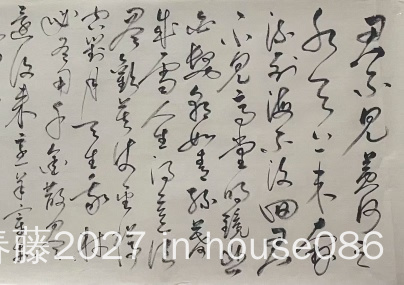 君不見黃河之
水天上來奔
流到海不復回君
不見高堂明鏡悲
白髮朝如青絲暮
成雪人生得意須
盡歡莫使金樽
空對月天生我材
必有用千金散盡
還復來烹羊宰牛
春藤2027 in house086